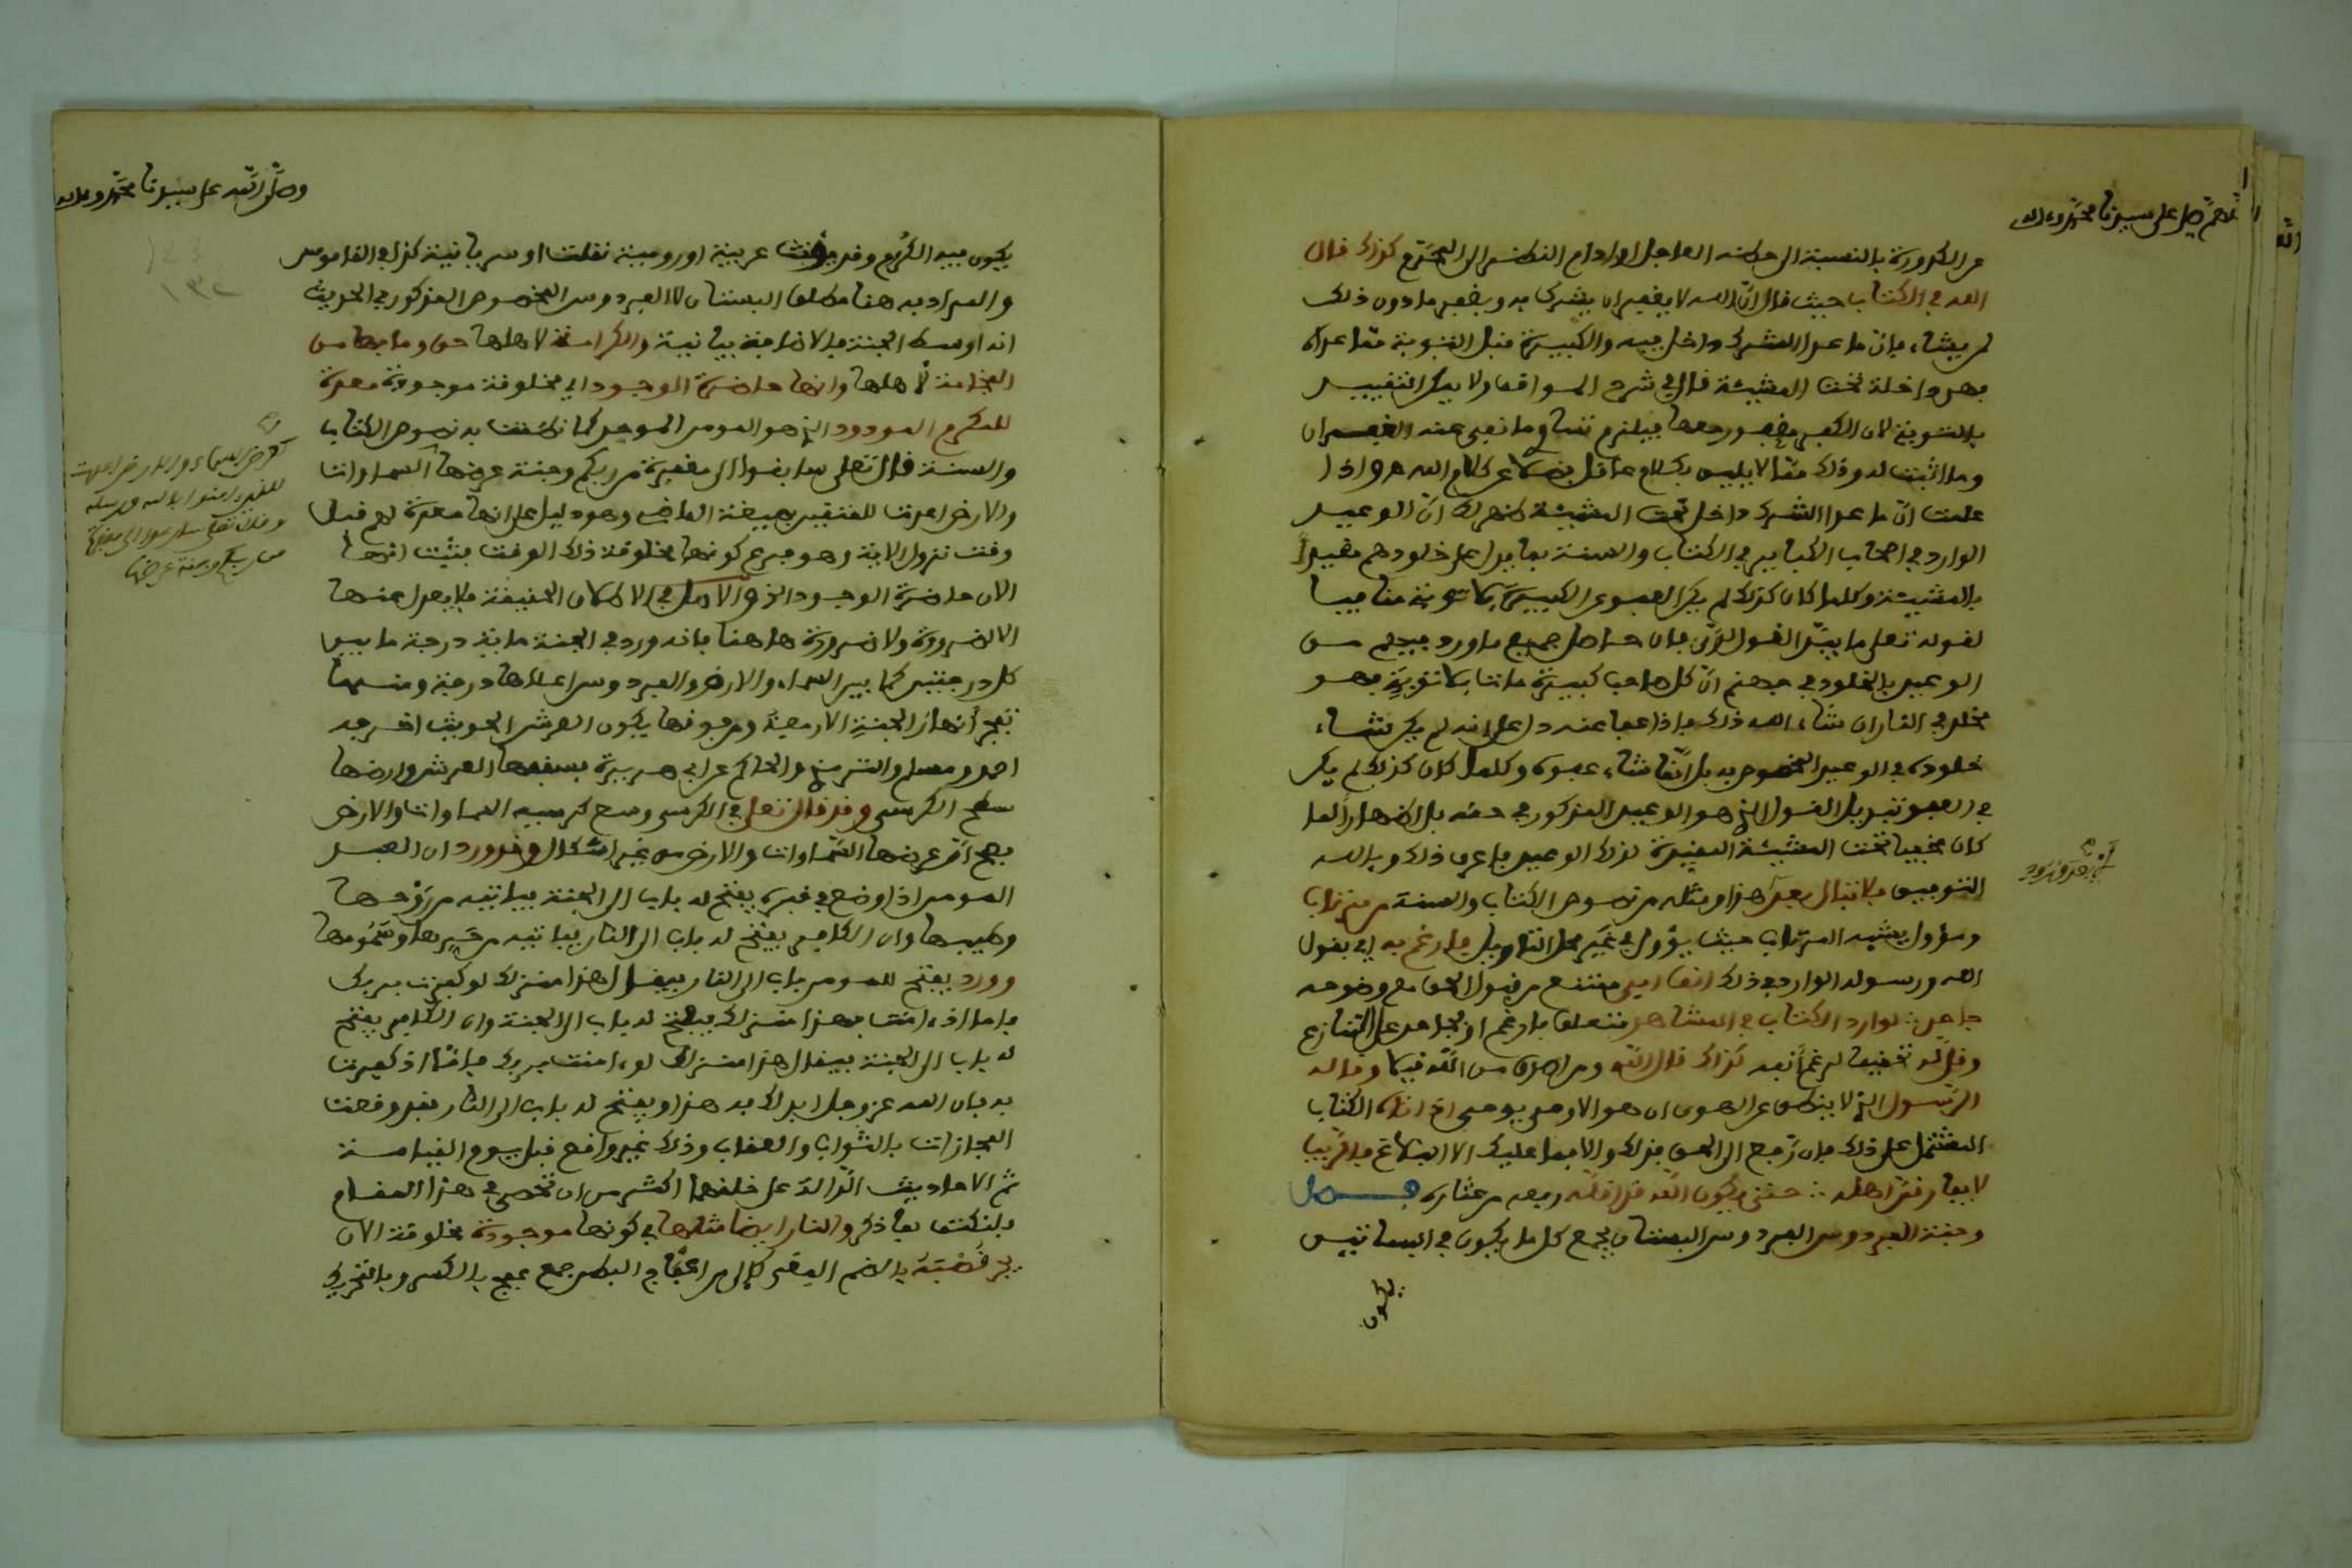 اللهم صل على سيدنا محمد وءاله
عن الكدورة بالنسبة الى
الله في الكتاب حيث قال ان الله لا يغفر ان يشرك به ويغفر ما دون ذلك
لمن يشاء فان ما عدا الشرك داخل فيه والكبيرة قبل التوبة مما عداه
فهي داخلة تحت المشيئة قال في شرح المواقف ولا يمكن التقييد
بالتوبة لان الكفر مغفور معها فيلزم تساوي ما نفى عنه الغفران
وما اثبت له وذلك مما لا يليق بكلام عاقل فضلا عن كلام الله هو واذا
علمت ان ما عدا الشرك داخل تحت المشيئة ظهر لك ان الوعيد
الوارد في اصحاب الكباير في الكتاب والسنة بما يدل على خلودهم مقيدا
بالمشيئة وكلما كان كذلك لم يكن العفو عن الكبيرة بلا توبة منافيا
لقوله تعلى ما يبدل القول لدي فان حاصل جميع ما ورد فيهم من
الوعيد بالخلود في جهنم ان كل صاحب كبيرة مات بلا توبة فهو
مخلد في النار ان شاء الله ذلك فاذا عفا عنه دل على انه لم يكن شاء
خلوده في الوعيد المخصوص به بل انما شاء عفوه وكلما كان كذلك لم يكن
في العفو تبديل القول الذي هو الوعيد المذكور في حقه بل اظهارا لما
كان مخفيا تحت المشيئة المقيدة لذلك الوعيد فاعرف ذلك وبالله
التوفيق فلا تبال بعد هذا ومثله من نصوص الكتاب والسنة من مرتاب
ومؤول يشبه المرتاب حيث يؤول في غير محل التاويل فارغم به اي بقول
الله ورسوله الوارد في ذلك انفا ابى ممتنع من قبول الحق مع وضوحه
جاحد لوارد الكتاب في المشاهد متعلق بارغم او بجاحد على التنازع
وقل له تحقيقا لرغم انفه كذاك قال الله ومن اصدق من الله قيلا وقاله
الرسول الذي لا ينطق عن الهوى ان هو الا وحي يوحى اذ اتاه الكتاب
المشتمل على ذلك فان رجع الى الحق فذاك والا فما عليك الا البلاغ فاقربا
لا بفارقن اهله حتى يكون الله قد اقاله ربه من عثاره فصل
وجنة الفردوس الفردوس البستان يجمع كل ما يكون في البساتين
يكون
وصلى الله على سيدنا محمد وءاله
يكون فيه الكروم وقد يؤنث عربية او رومية نقلت او سريانية كذا في القاموس
والمراد به هنا مطلق البستان لا الفردوس المخصوص المذكور في الحديث
انه اوسط الجنة فالاضافة بيانية والكرامة لاهلها حق وما بها من
الفخامة لاهلها وانها حاضرة الوجود اي مخلوقة موجودة معدة
للمكرم المودود الذي هو المومن الموحد كما نطقت به نصوص الكتاب
والسنة قال تعلى سابقوا الى مغفرة من ربكم وجنة عرضها السماوات
والارض اعدت للمتقين بصيغة الماضي وهو دليل على انها معدة لهم قبل
وقت نزول الاية وهو فرع كونها مخلوقة ذلك الوقت فثبت انها
الان حاضرة الوجود اذ الاصل في الاطلاق الحقيقة فلا يعدل عنها
الا لضرورة ولا ضرورة هاهنا فانه ورد في الجنة مائة درجة ما بين
كل درجتين كما بين السماء والارض والفردوس اعلاها درجة ومنها
تفجر انهار الجنة الاربعة ومن فوقها يكون العرش الحديث اخرجه
احمد ومسلم والترمذي والحاكم عن ابي هريرة فسقفها العرش وارضها
سطح الكرسي وقد قال تعلى في الكرسي وسع كرسيه السماوات والارض
فصح ان عرضها السماوات والارض من غير اشكال وقد ورد ان العبد
المومن اذا وضع في قبره يفتح له باب الى الجنة فياتيه من روحها
وطيبها وان الكافر يفتح له باب الى النار فياتيه من حرها وسمومها
وورد يفتح للمومن باب الى النار فيقال هذا منزلك لو كفرت بربك
فاما اذ ءامنت فهذا منزلك فيفتح له باب الى الجنة وان الكافر يفتح
له باب الى الجنة فيقال هذا منزلك لو ءامنت بربك فاما اذ كفرت
به فان الله عز وجل ابدلك به هذا ويفتح له باب الى النار فقد وقعت
المجازات بالثواب والعقاب وذلك غير واقع قبل يوم القيامة
ثم الاحاديث الدالة على خلقهما اكثر من ان تحصى في هذا المقام
فلنكتف بما ذكر والنار ايضا مثلها في كونها موجودة مخلوقة الان
بالضم جمع بالكسر وبالتحريك
كعرض السماء والارض اعدت
للذين امنوا بالله ورسله
وقال تعلى سارعوا الى مغفرة
من ربكم وجنة عرضها